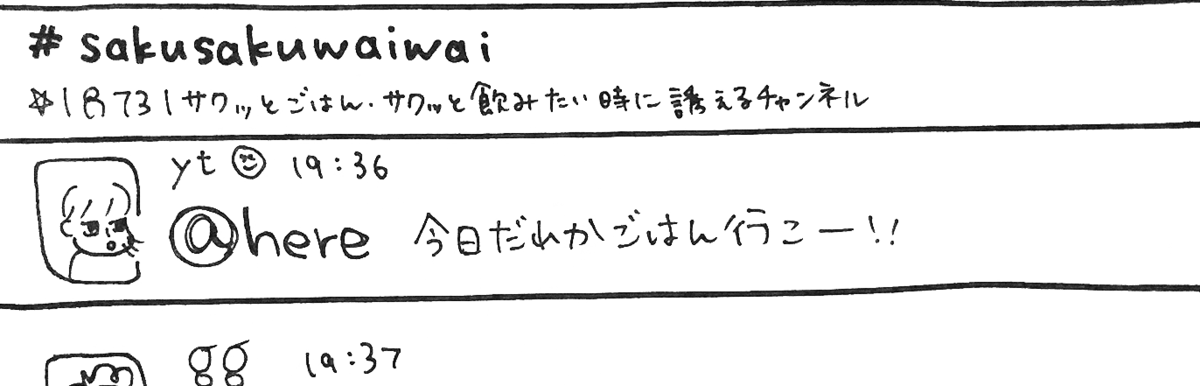 #sakusakuwaiwai
☆1873 | サクッとごはん・サクッと飲みたい時に誘えるチャンネル
yt 19:36
@here 今日だれかごはん行こー!!
gg 19:37